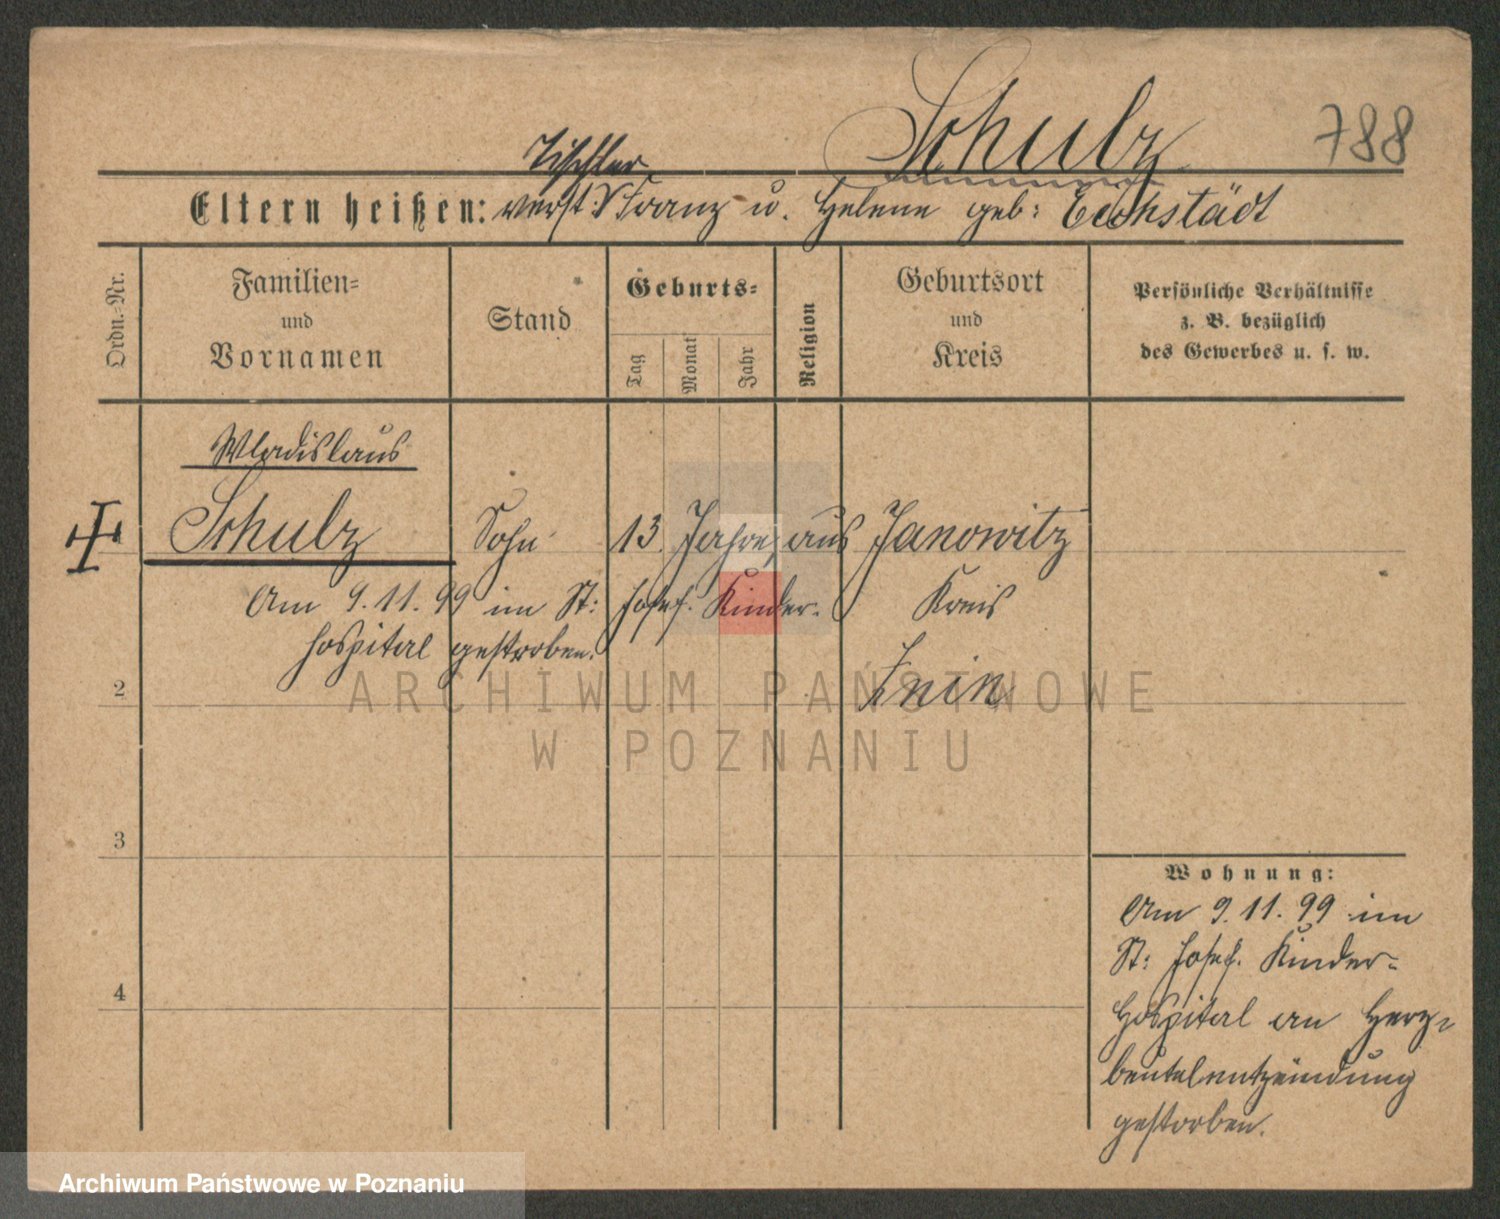 Schulz
788
Tischler
Eltern heißen: verst: Franz u. Helene geb: Eichstädt
Ordn.-Nr.
Familien-
und
Vornamen
Stand
Geburts-
Tag
Monat
Jahr
Religion
Geburtsort
und
Kreis
Persönliche Verhältnisse
z. B. bezüglich
des Gewerbes u. s. w.
Wladislaus
Schulz Sohn 13 Jahre, aus Janowitz
Am 9.11.99 im St: Josef. Kinder-
Kreis
hospital gestorben.
Znin
2
ARCHIWUM PAŃSTWOWE
W POZNANIU
3
4
Wohnung:
Am 9.11.99 im
St: Josef. Kinder-
Hospital an Herz-
beutelentzündung
gestorben.
Archiwum Państwowe w Poznaniu